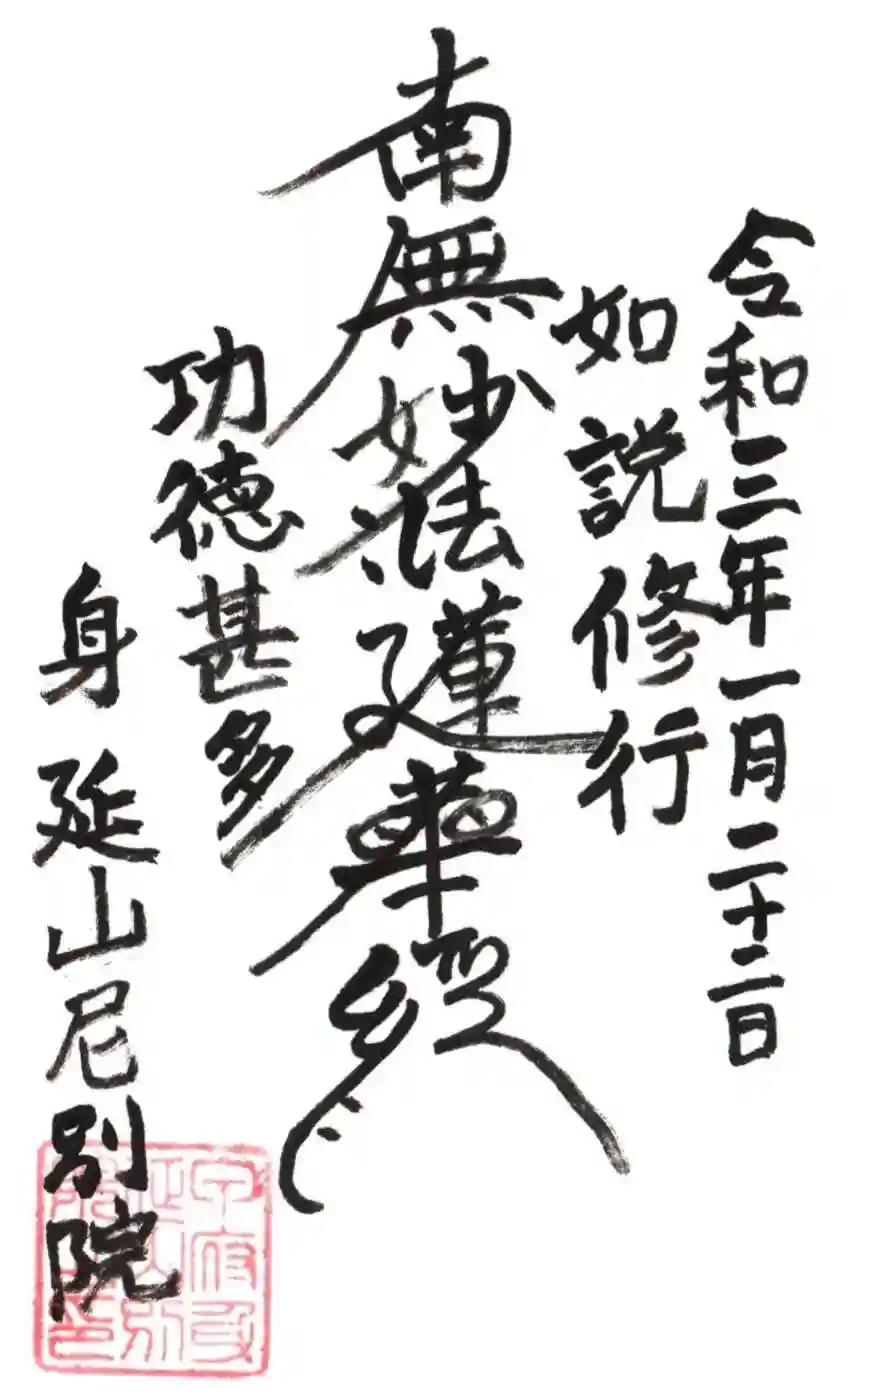 令和三年一月二十二日
如説修行
南無妙法蓮華經
功徳甚多
身延山尼別院